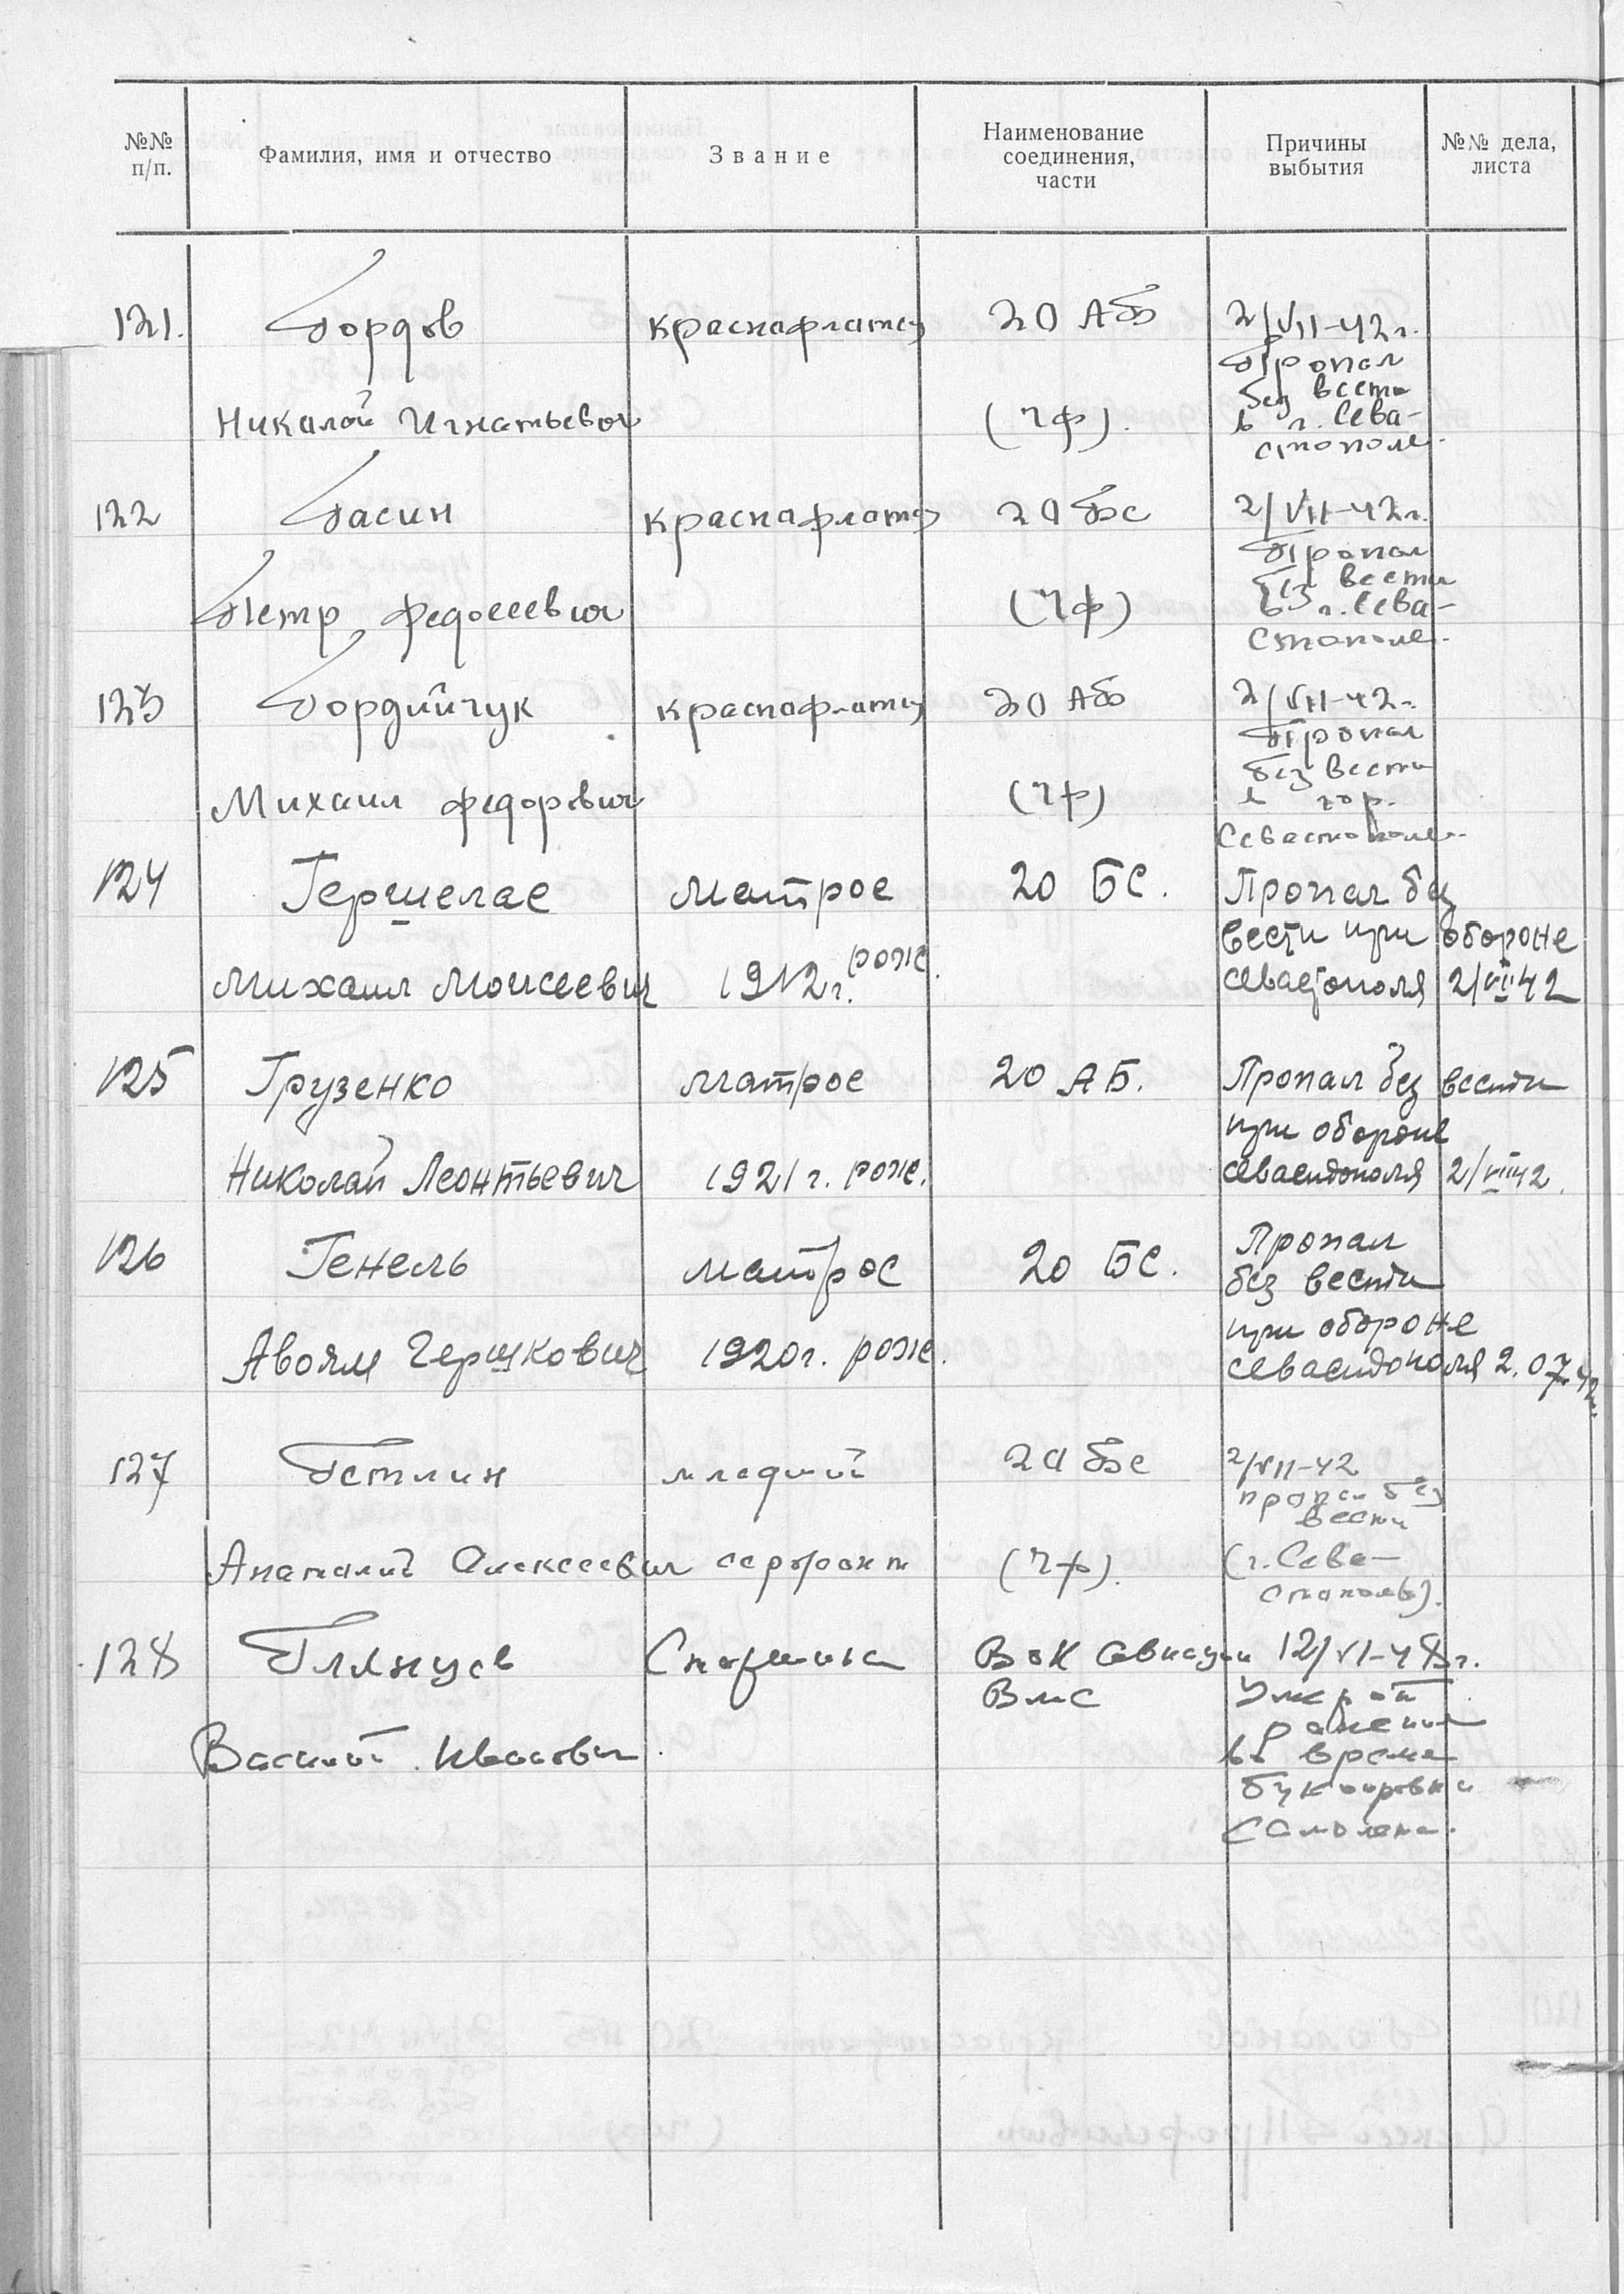 №№ п/п.
Фамилия, имя и отчество
Звание
Наименование соединения, части
Причины выбытия
№№ дела, листа
121. Гордов краснофлотец 20 АБ 2/VII-42г.
Пропал
без вести
Николай Игнатьевич (ЧФ). в г. Сева-
стополе.
122 Басин краснофлотец 20 БС 2/VII-42г.
Пропал
без вести
Петр Федосеевич (ЧФ) в г. Сева-
стополе.
123 Гордийчук краснофлотец 20 АБ 2/VII-42г.
Пропал
без вести
Михаил Федорович (ЧФ) в гор.
Севастополе.
124 Гершелас матрос 20 БС. Пропал без
вести при обороне
Михаил Моисеевич 1912г. рож. Севастополя 2/VII 42
125 Грузенко матрос 20 АБ. Пропал без вести
при обороне
Николай Леонтьевич 1921 г. рож. Севастополя 2/VII 42.
126 Генель матрос 20 БС. Пропал
без вести
при обороне
Авоям Гершкович 1920г. рож. Севастополя 2.07.42г.
127 младший 20 БС 2/VII-42
пропал без
вести
Анатолий Алексеевич сержант (ЧФ). (г. Сева-
стополь).
128 Старшина ВОК Авиации 12/VI-48г.
ВМС Умер от
ранения
Василий Иванович во время
буксировки
самолета.